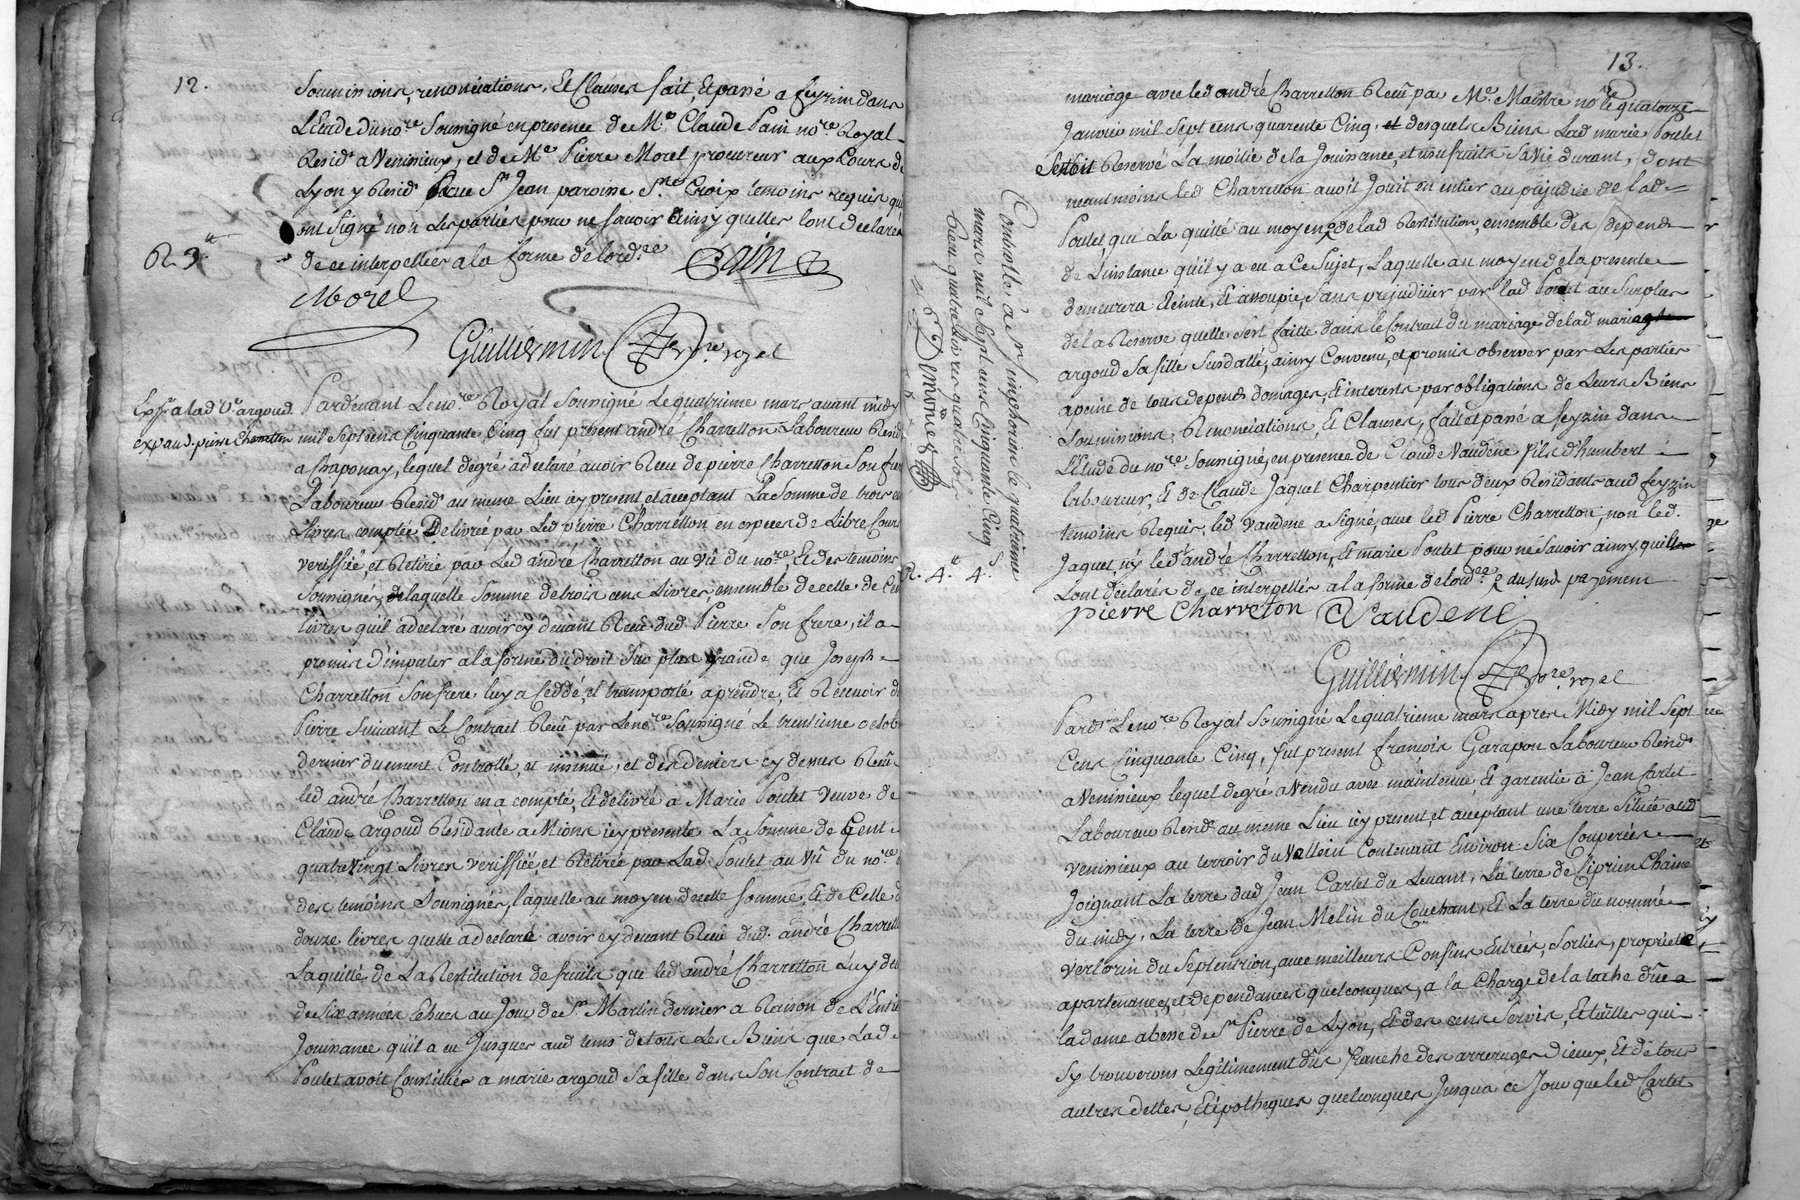 12.
Soumissions, renonciations, Et Clauses fait, Et passé a feyzin dans
L'Etude du nore Soussigné en presence de Me Claude Pain nore Royal
Resid.t a Venissieux, et de Me Pierre Morel procureur aux Cours de
Lyon y Resid.t Rue St Jean paroisse Ste Croix temoins requis qui
ont Signé non Les parties pour ne Savoir Ainsy quelles lont declarés
R. 9.tt
de ce interpellées a la forme de lord.ce Pain
Morel
Guilliermin nore royel
Exp.e a lad. Ve argoud
exp. aud. pierre Charretton
Pardevant Le nore Royal Soussigné Le quatrieme mars avant midy
mil Sept cens Cinquante Cinq fut present andré Charretton Laboureur Resid.
a Chaponay, lequel degré a declaré avoir Receu de pierre Charretton Son frere
Laboureur Resid.t au meme Lieu icy present et acceptant La Somme de trois cens
Livres comptée Delivrée par Led. Pierre Charretton en especes de Libre Cours
verifiée, et Retirée par Led andré Charretton au Vû du nore, Et des temoins
Soussignés, de laquelle Somme de trois cens Livres, ensemble de celle de Cent
livres qu'il a declaré avoir cy devant Receu dud. Pierre Son frere, il a
promis d'imputer a la forme du droit Sur plus grande que Joseph
Charretton Son frere luy a Ceddé, et transporté a prendre, Et Recevoir de
Pierre Suivant Le Contrat Receu par Le nore Soussigné Le trentieme octobre
dernier duement Controllé, et insinué, et des deniers cy dessus Receu
led andré Charretton en a compté, Et delivré a Marie Poulet Veuve de
Claude argoud Residante a Mions icy presente La Somme de Cent
quatre Vingt Livres verifiée, et Retirée par Lad. Poulet au Vû du nore
des temoins Soussignés, laquelle au moyen de cette Somme, Et de Celle de
douze livres quelle a declaré avoir cy devant Receu dud. andré Charretton
La quitte de La Restitution de fruits que led andré Charretton Luy doit
de Six années Echues au Jour de St Martin dernier a Raison de L'Entiere
Jouissance qu'il a eu Jusques aud tems de tous Les Biens que Lad
Poulet avoit Constitués a marie argoud Sa fille dans Son Contract de
Controllé a St Simphorien le quatrieme
mars mil Sept cens Cinquante Cinq
Receu quatre livres quatre sols
R. 4.tt 4.s
13.
mariage avec led andré Charretton Receu par Me Maistre nore le quatorze
Janvier mil Sept cens quarente Cinq, et desquels Biens Lad marie Poulet
Sestoit Reservé La moitié de la Jouissance, et usufruits Sa Vie durant, dont
neant moins led Charretton avoit Jouit en entier au prejudice de lad
Poulet, qui La quitté au moyen de lad Restitution, ensemble des depends
de L'instance qu'il y a eu a Ce Sujet, Laquelle au moyen de la presente
demeurera Eteinte, Et assoupie, Sans prejudicier par lad Poulet au Surplus
de la Reserve quelle Sest faitte dans le Contrat du mariage de lad marie
argoud Sa fille Susdatté, ainsy Convenu, et promis observer par Les parties
a peine de tous depends domages, Et interets par obligations de Leurs Biens
Soumissions, Renonciations, Et Clauses, fait et passé a feyzin dans
L'Etude du nore Soussigné, en presence de Claude Vaudene fils d'humbert
laboureur, Et de Claude Jaquet Charpentier tous deux Residants aud feyzin
temoins Requis, led. Vaudene a Signé, avec led Pierre Charretton, non led.
Jaquet, ny led andré Charretton, Et marie Poulet pour ne Savoir ainsy quils
Lont declarés de ce interpellés a la forme de lord.ce du susd. payement
pierre Charreton Vaudene
Guilliermin nore royel
Pard.t Le nore Royal Soussigné Le quatrieme mars apres Midy mil Sept
Cens Cinquante Cinq, fut present françois Garapon Laboureur Resid.t
a Venissieux lequel degré a Vendu avec maintenue, Et garentie a Jean Cartet
Laboureur Resid.t au meme Lieu icy present et acceptant une terre Située aud.
Venissieux au terroir du Vallein Contenant Environ Six Couperées
Joignant La terre dud Jean Cartet du Levant, La terre de Ciprien Chaine
du midy, La terre de Jean Melin du Couchant, Et La terre du nommé
Verlorin du Septentrion, avec meilleurs Confins Entrées, Sorties, proprietés
apartenances, et dependances quelconques, a la Charge de la tache dûe a
la dame abesse de St Pierre de Lyon, Et des cens Servis, Et tailles qui
Sy trouveront Legitimement dûs franche des arrerages d'iceux, Et de tous
autres dettes, Et ipotheques quelconques Jusqua ce Jour que led Cartet